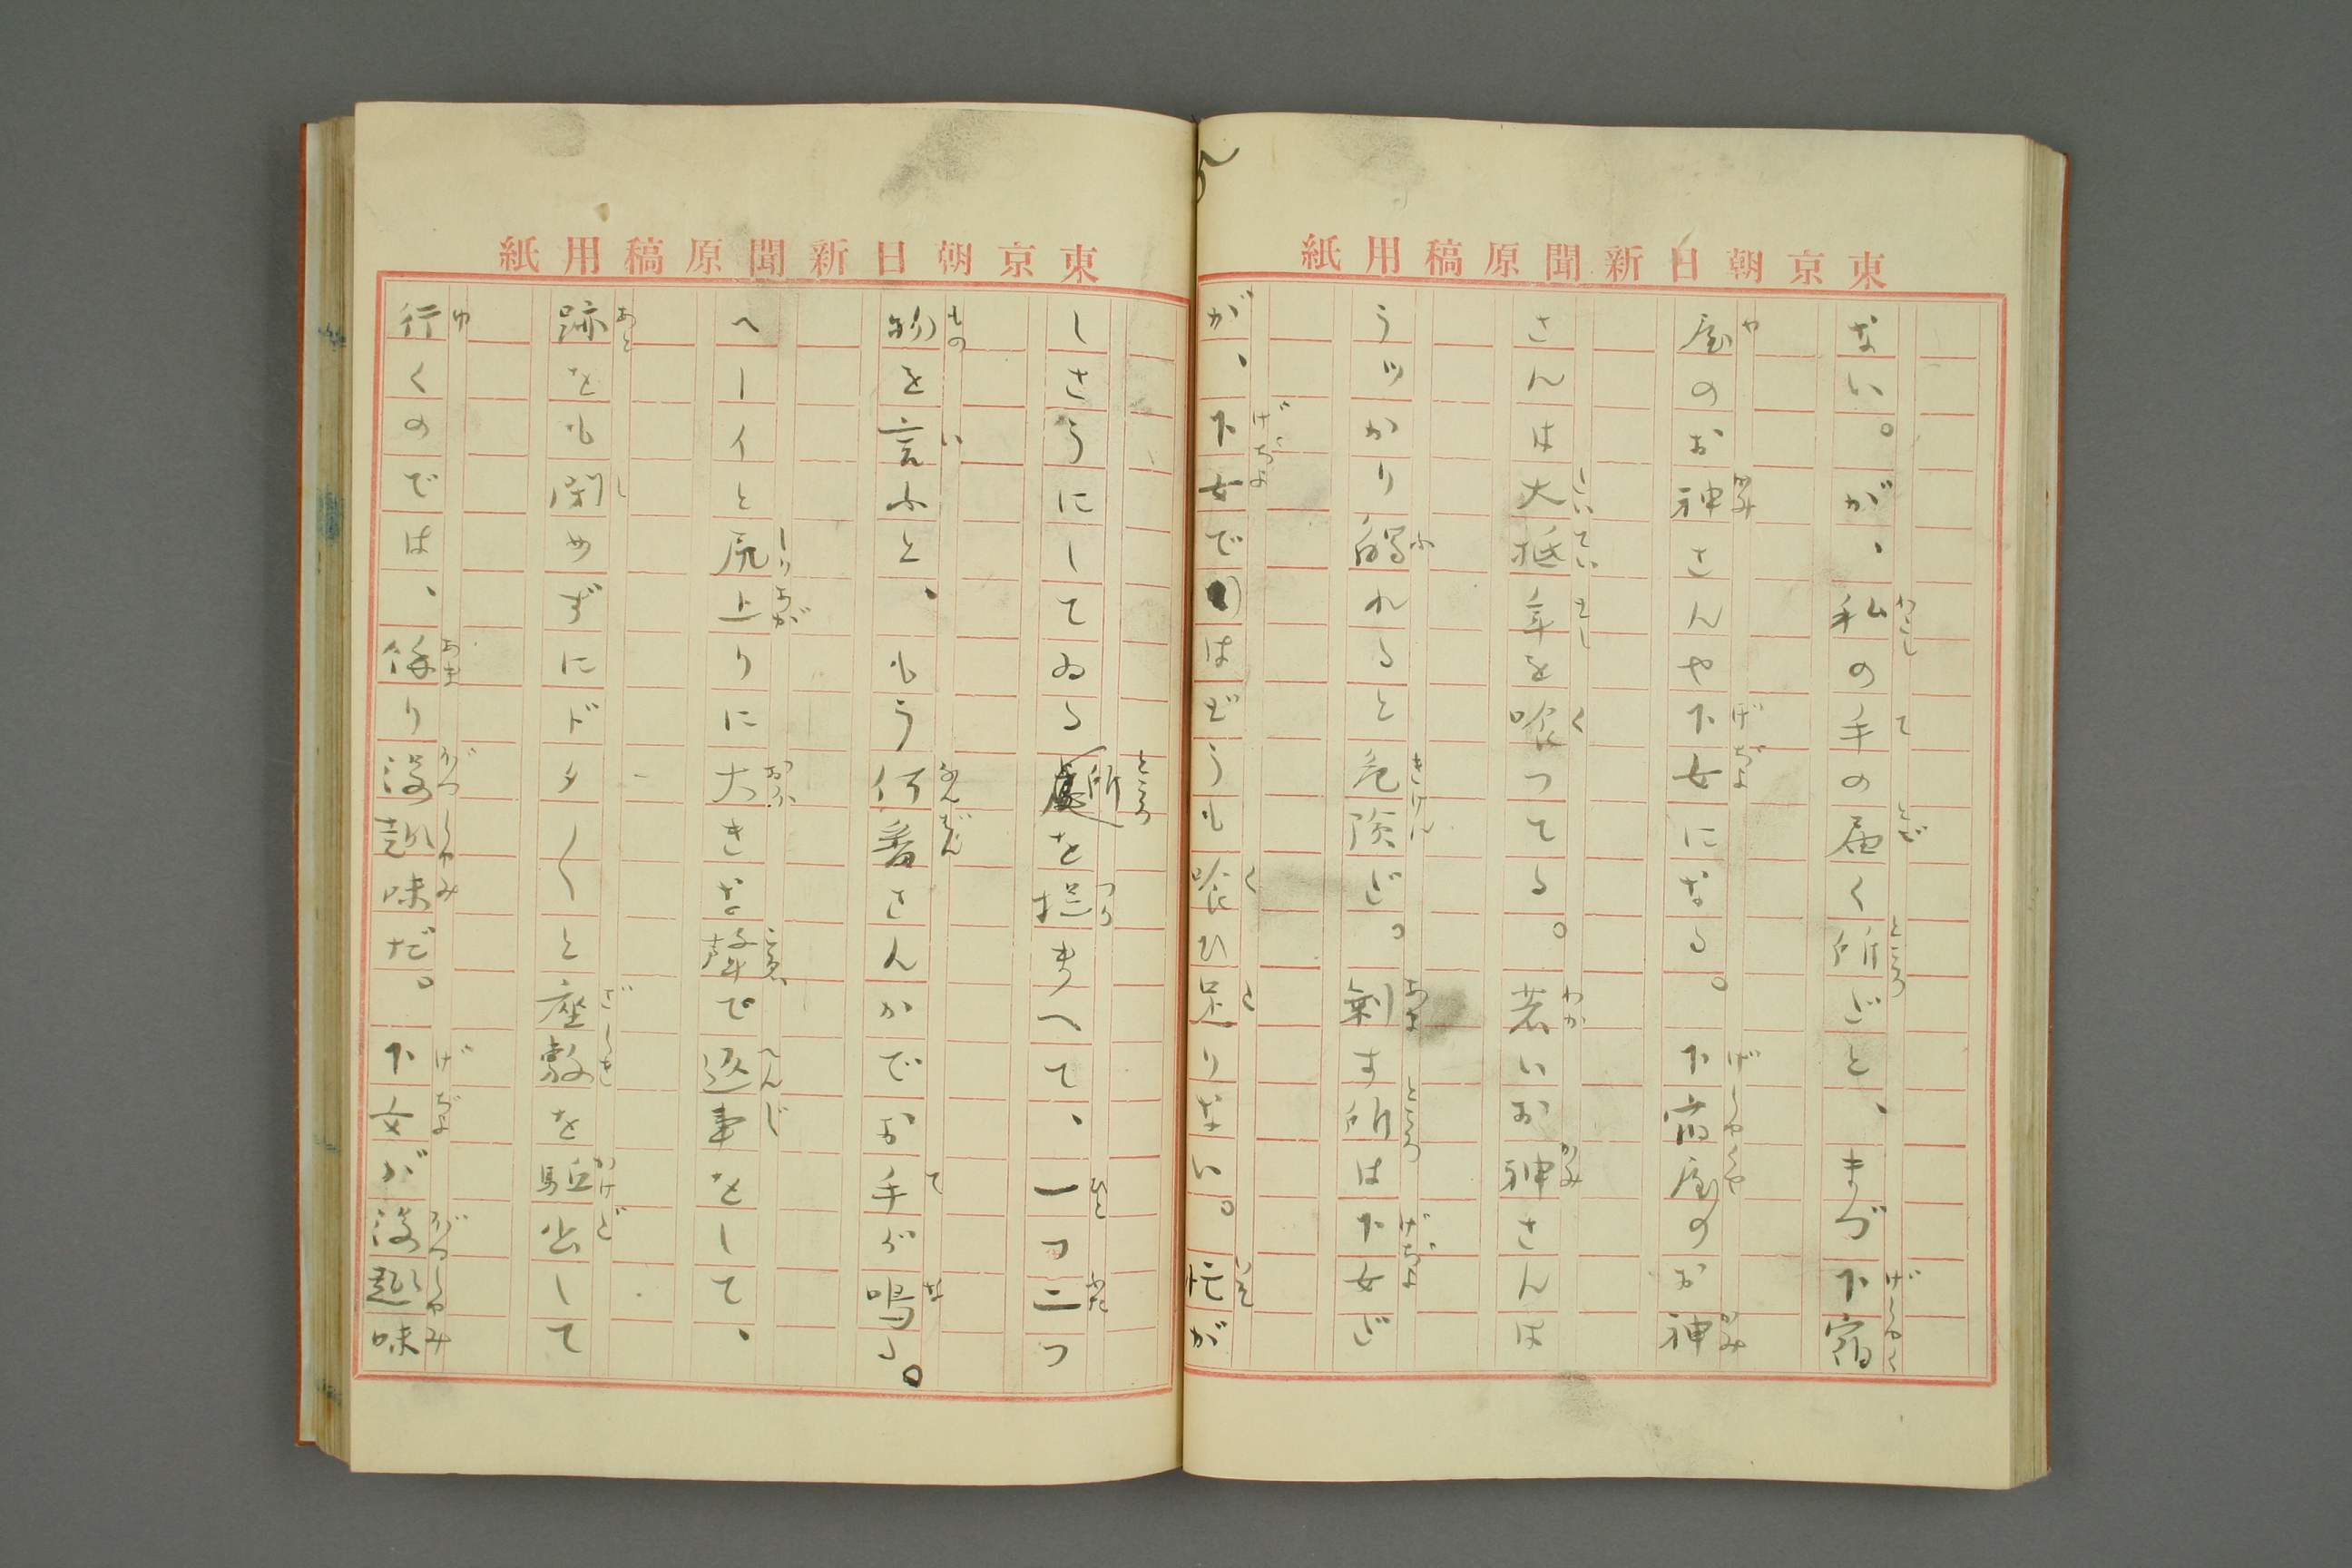 東京朝日新聞原稿用紙
ない。が、私の手の届く所だと、まづ下宿
屋のお神さんや下女になる。下宿屋のお神
さんは大抵年を喰つてる。若いお神さんは
うツかり觸れると危険だ。剰す所は下女だ
が、下女ではどうも喰ひ足りない。忙が
東京朝日新聞原稿用紙
しさうにしてゐる所を捉まへて、一つ二つ
物を言ふと、もう何番さんかでお手が鳴る。
へーイと尻上りに大きな聲で返事をして、
跡をも閉めずにドタ〱と座敷を駈出して
行くのでは、余り没趣味だ。下女が没趣味